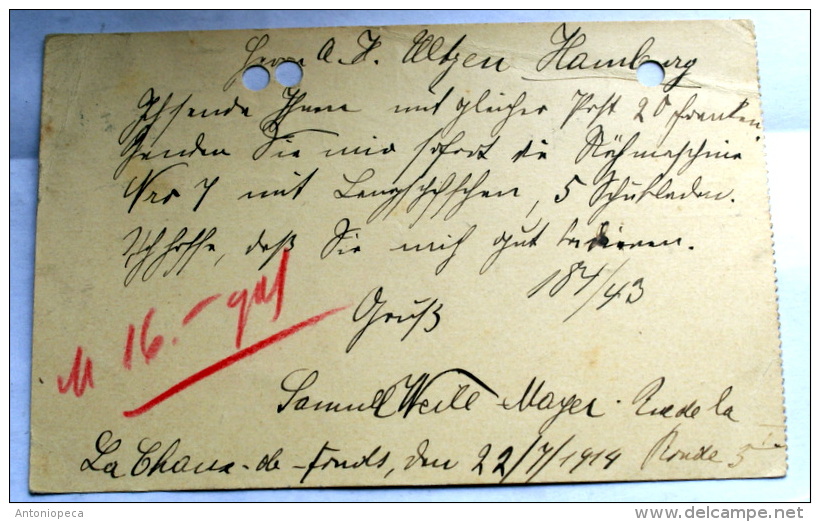 Herrn A. H. Ültzen Hamburg
Ich sende Ihnen mit gleicher Post 20 Franken.
Senden Sie mir sofort die Nähmaschine
Nro 7 mit Langschiffchen, 5 Schubladen.
Ich hoffe, daß Sie mich gut bedienen.
184/43
Gruß
M 16.-
Samuel Weill-Mayer Rue de la
Ronde 5
La Chaux-de-Fonds, den 22/7/1914
Antoniopeca
http://www.delcampe.net